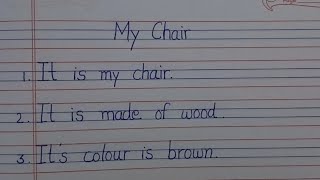 My Chair
1. It is my chair.
2. It is made of wood.
3. It's colour is brown.